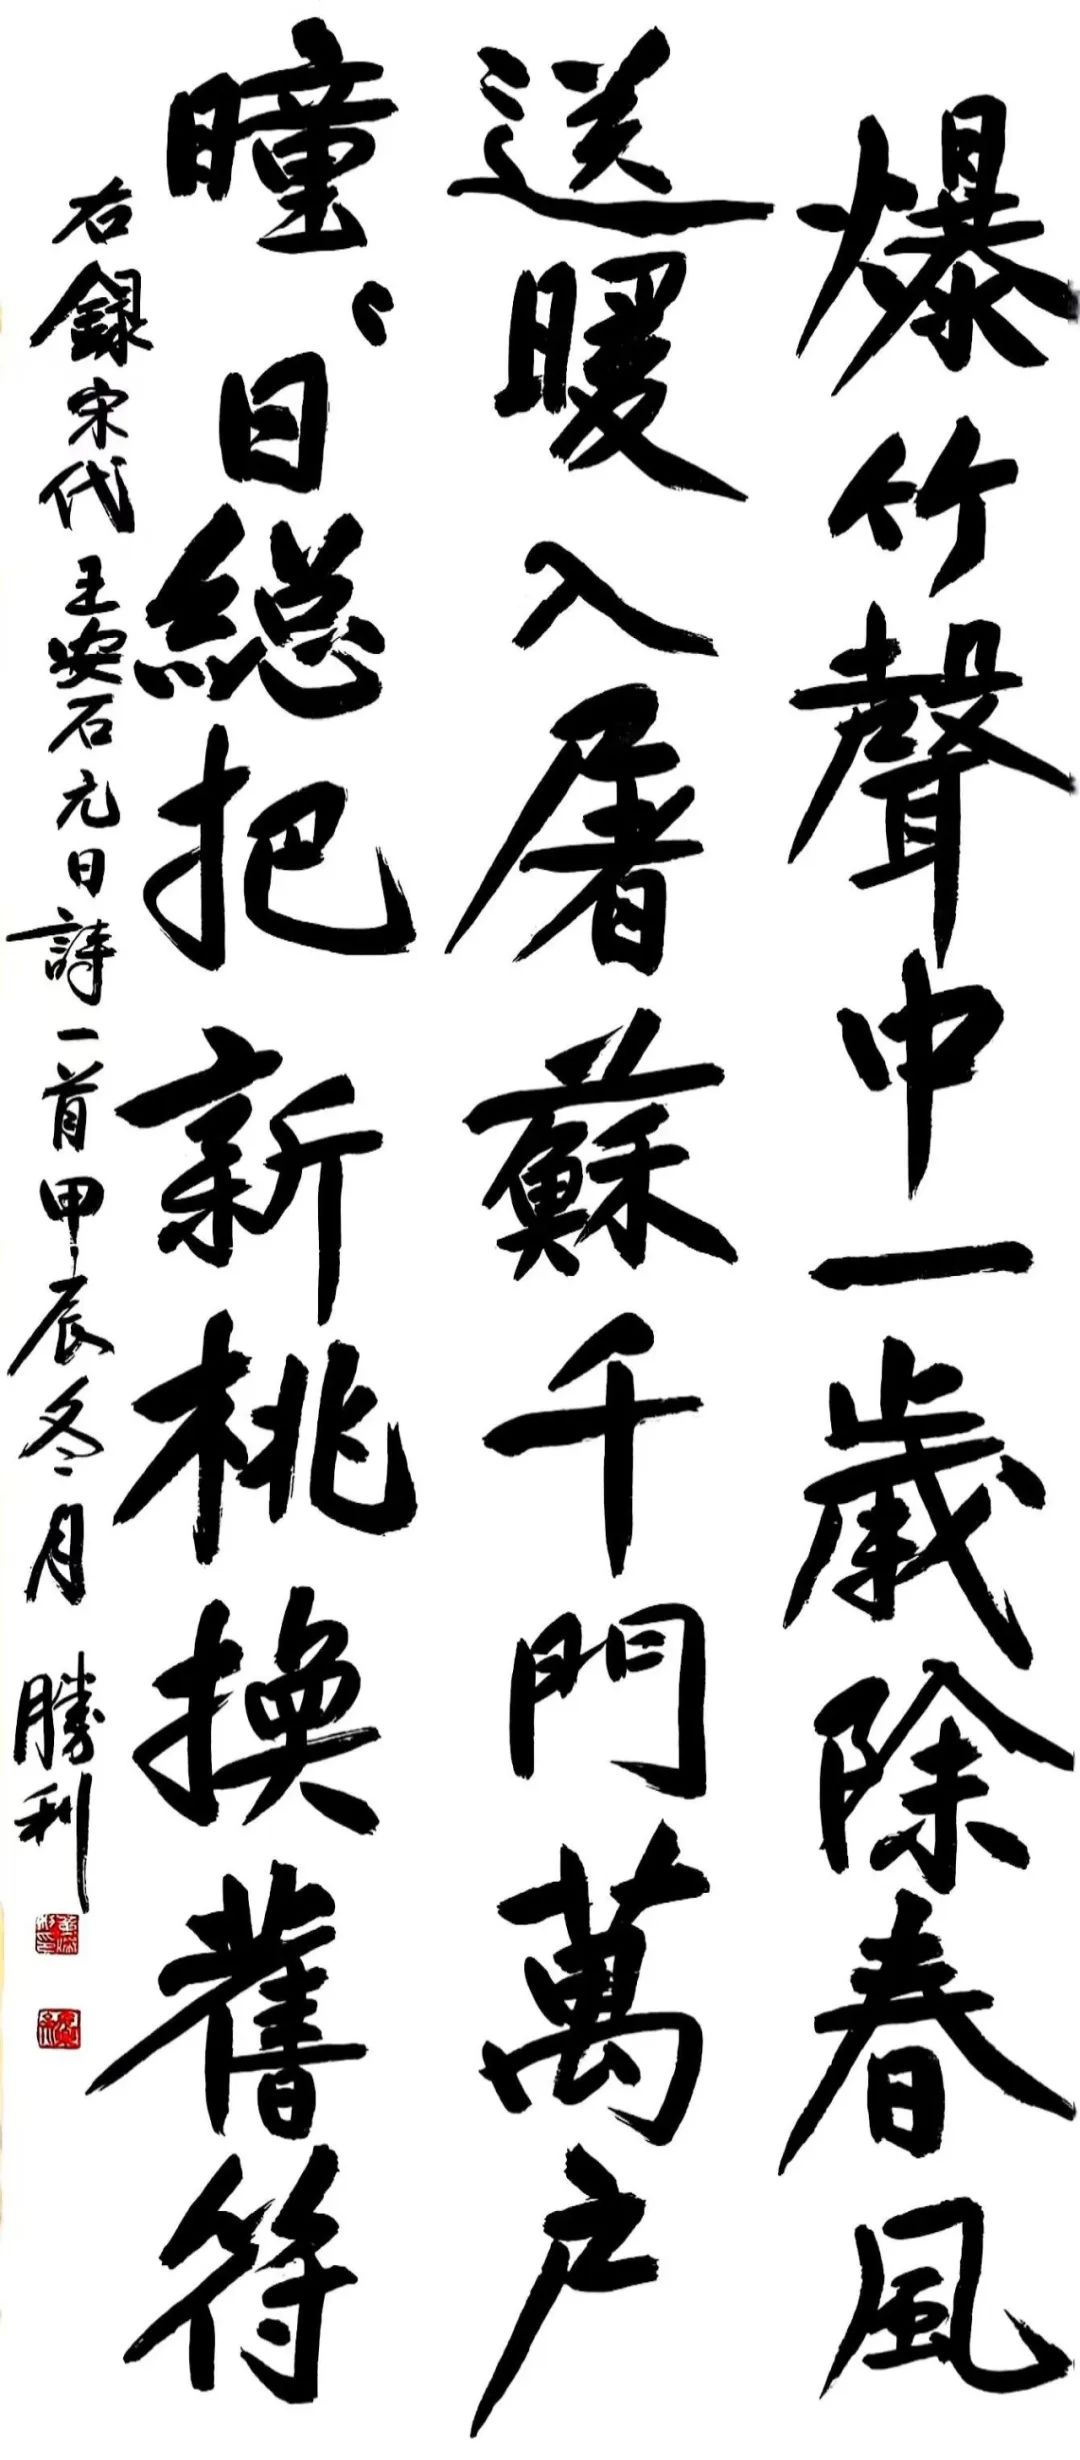 爆竹聲中一歲除春風
送暖入屠蘇千門萬户
曈〻日總把新桃換舊符
右録宋代王安石元日詩一首甲辰冬月 勝利